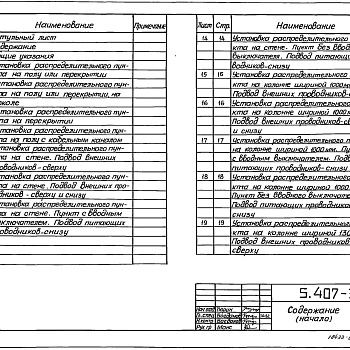 Наименование
Примечание
тульный лист
держание
щие указания
тановка распределительного пун-
та на полу или перекрытии
тановка распределительного пун-
та на полу или перекрытии, на
околе
тановка распределительного пун-
та на перекрытии
тановка распределительного пун-
та на полу с кабельным каналом
тановка распределительного пун-
та на стене. Подвод внешних
роводников-сверху
тановка распределительного пун-
та на стене. Подвод внешних про-
дников - сверху и снизу
тановка распределительного пун-
та на стене. Пункт с вводным
выключателем. Подвод питающих
роводников-снизу
Лист Стр. Наименование
14 14 Установка распределительного
кта на стене. Пункт без вво
выключателя. Подвод питающ
водников-снизу
15 15 Установка распределительного
кта на колонне шириной 1000мм
Подвод внешних проводников-
16 16 Установка распределительного
кта на колонне шириной 1000
Подвод внешних проводников-св
и снизу
17 17 Установка распределительного п
на колонне шириной 1000мм. Пу
с вводным выключателем. Под
питающих проводников-снизу
18 18 Установка распределительного
кта на колонне шириной 1000
Пункт без вводного выключател
Подвод питающих проводников
снизу
19 19 Установка распределительно
кта на колонне шириной 130
Подвод внешних проводников
сверху
5.407-
Содержание
(начало)